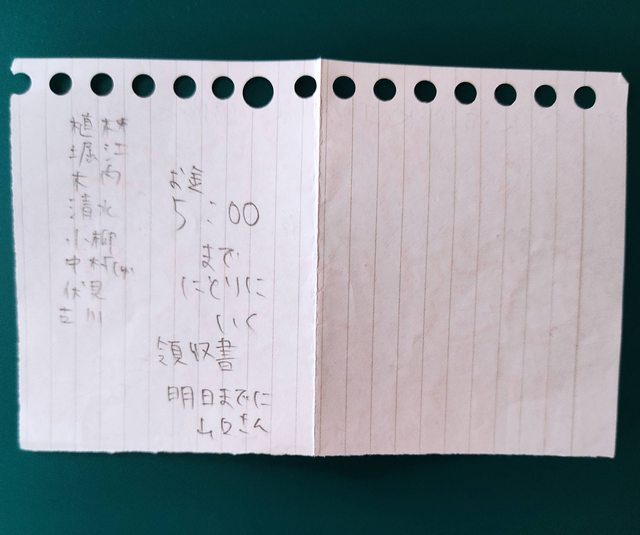 植林
堀江
木内
清水
小柳
中村
伏見
吉川
お金
5:00
まで
にとりに
いく
領収書
明日までに
山口さん